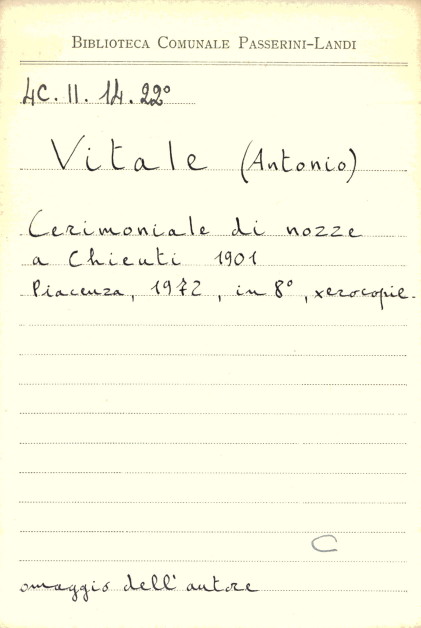 BIBLIOTECA COMUNALE PASSERINI-LANDI
4C. II. 14. 22°
Vitale (Antonio)
Cerimoniale di nozze
a Chieuti 1901
Piacenza, 1972, in 8°, xerocopie.
C
omaggio dell'autore